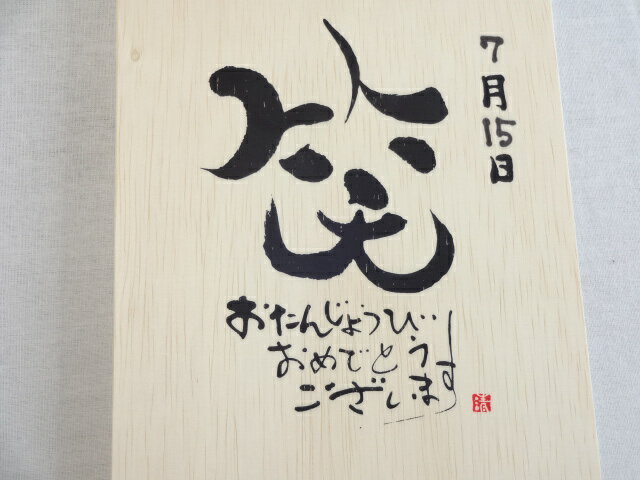 7月15日
笑
おたんじょうび
おめでとう
ございます